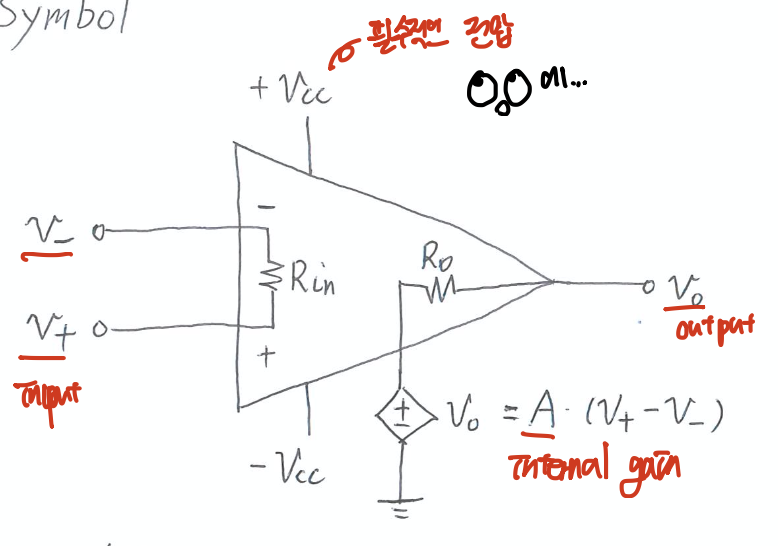 Symbol
필수적인 전압
+Vcc
에...
V-
-
Rin
Ro
Vo
output
V+
+
Input
Vo = A · (V+ - V-)
Internal gain
-Vcc